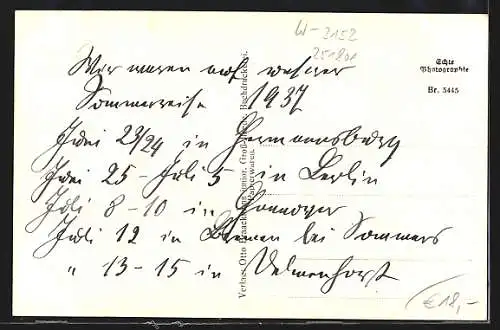 W-3152
251201
Wir waren auf unserer
Sommerreise 1937
Juni 23/24 in Hermannsburg
Juni 25 - Juli 5 in Berlin
Juli 8-10 in Hannover
Juli 12 in Bremen bei Sommers
" 13-15 in Delmenhorst
Echte
Photographie
Br. 5445
Verlag: Otto junior, Buchdruckerei,
Papierwaren.
€18,-